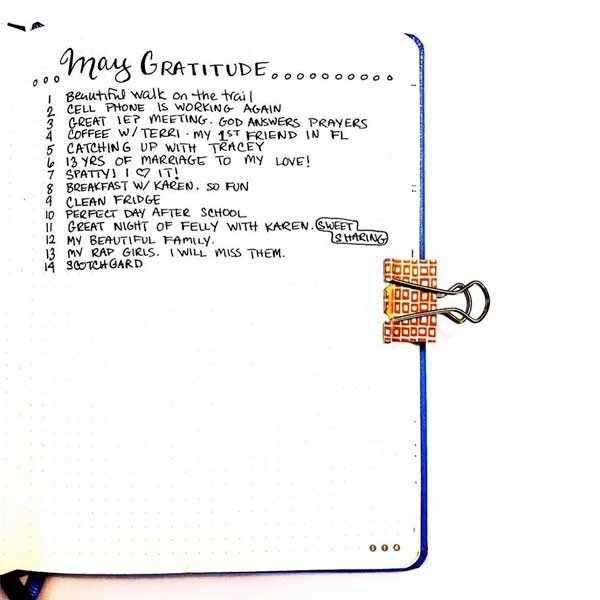 May GRATITUDE
1 Beautiful walk on the trail
2 CELL PHONE IS WORKING AGAIN
3 GREAT IEP MEETING. GOD ANSWERS PRAYERS
4 COFFEE W/ TERRI. MY 1ST FRIEND IN FL
5 CATCHING UP WITH TRACEY
6 13 YRS OF MARRIAGE TO MY LOVE!
7 SPATTY! I ♡ IT!
8 BREAKFAST W/ KAREN. SO FUN
9 CLEAN FRIDGE
10 PERFECT DAY AFTER SCHOOL
11 GREAT NIGHT OF FELLY WITH KAREN. SWEET
12 MY BEAUTIFUL FAMILY. SHARING
13 MY RAP GIRLS. I WILL MISS THEM.
14 SCOTCHGARD